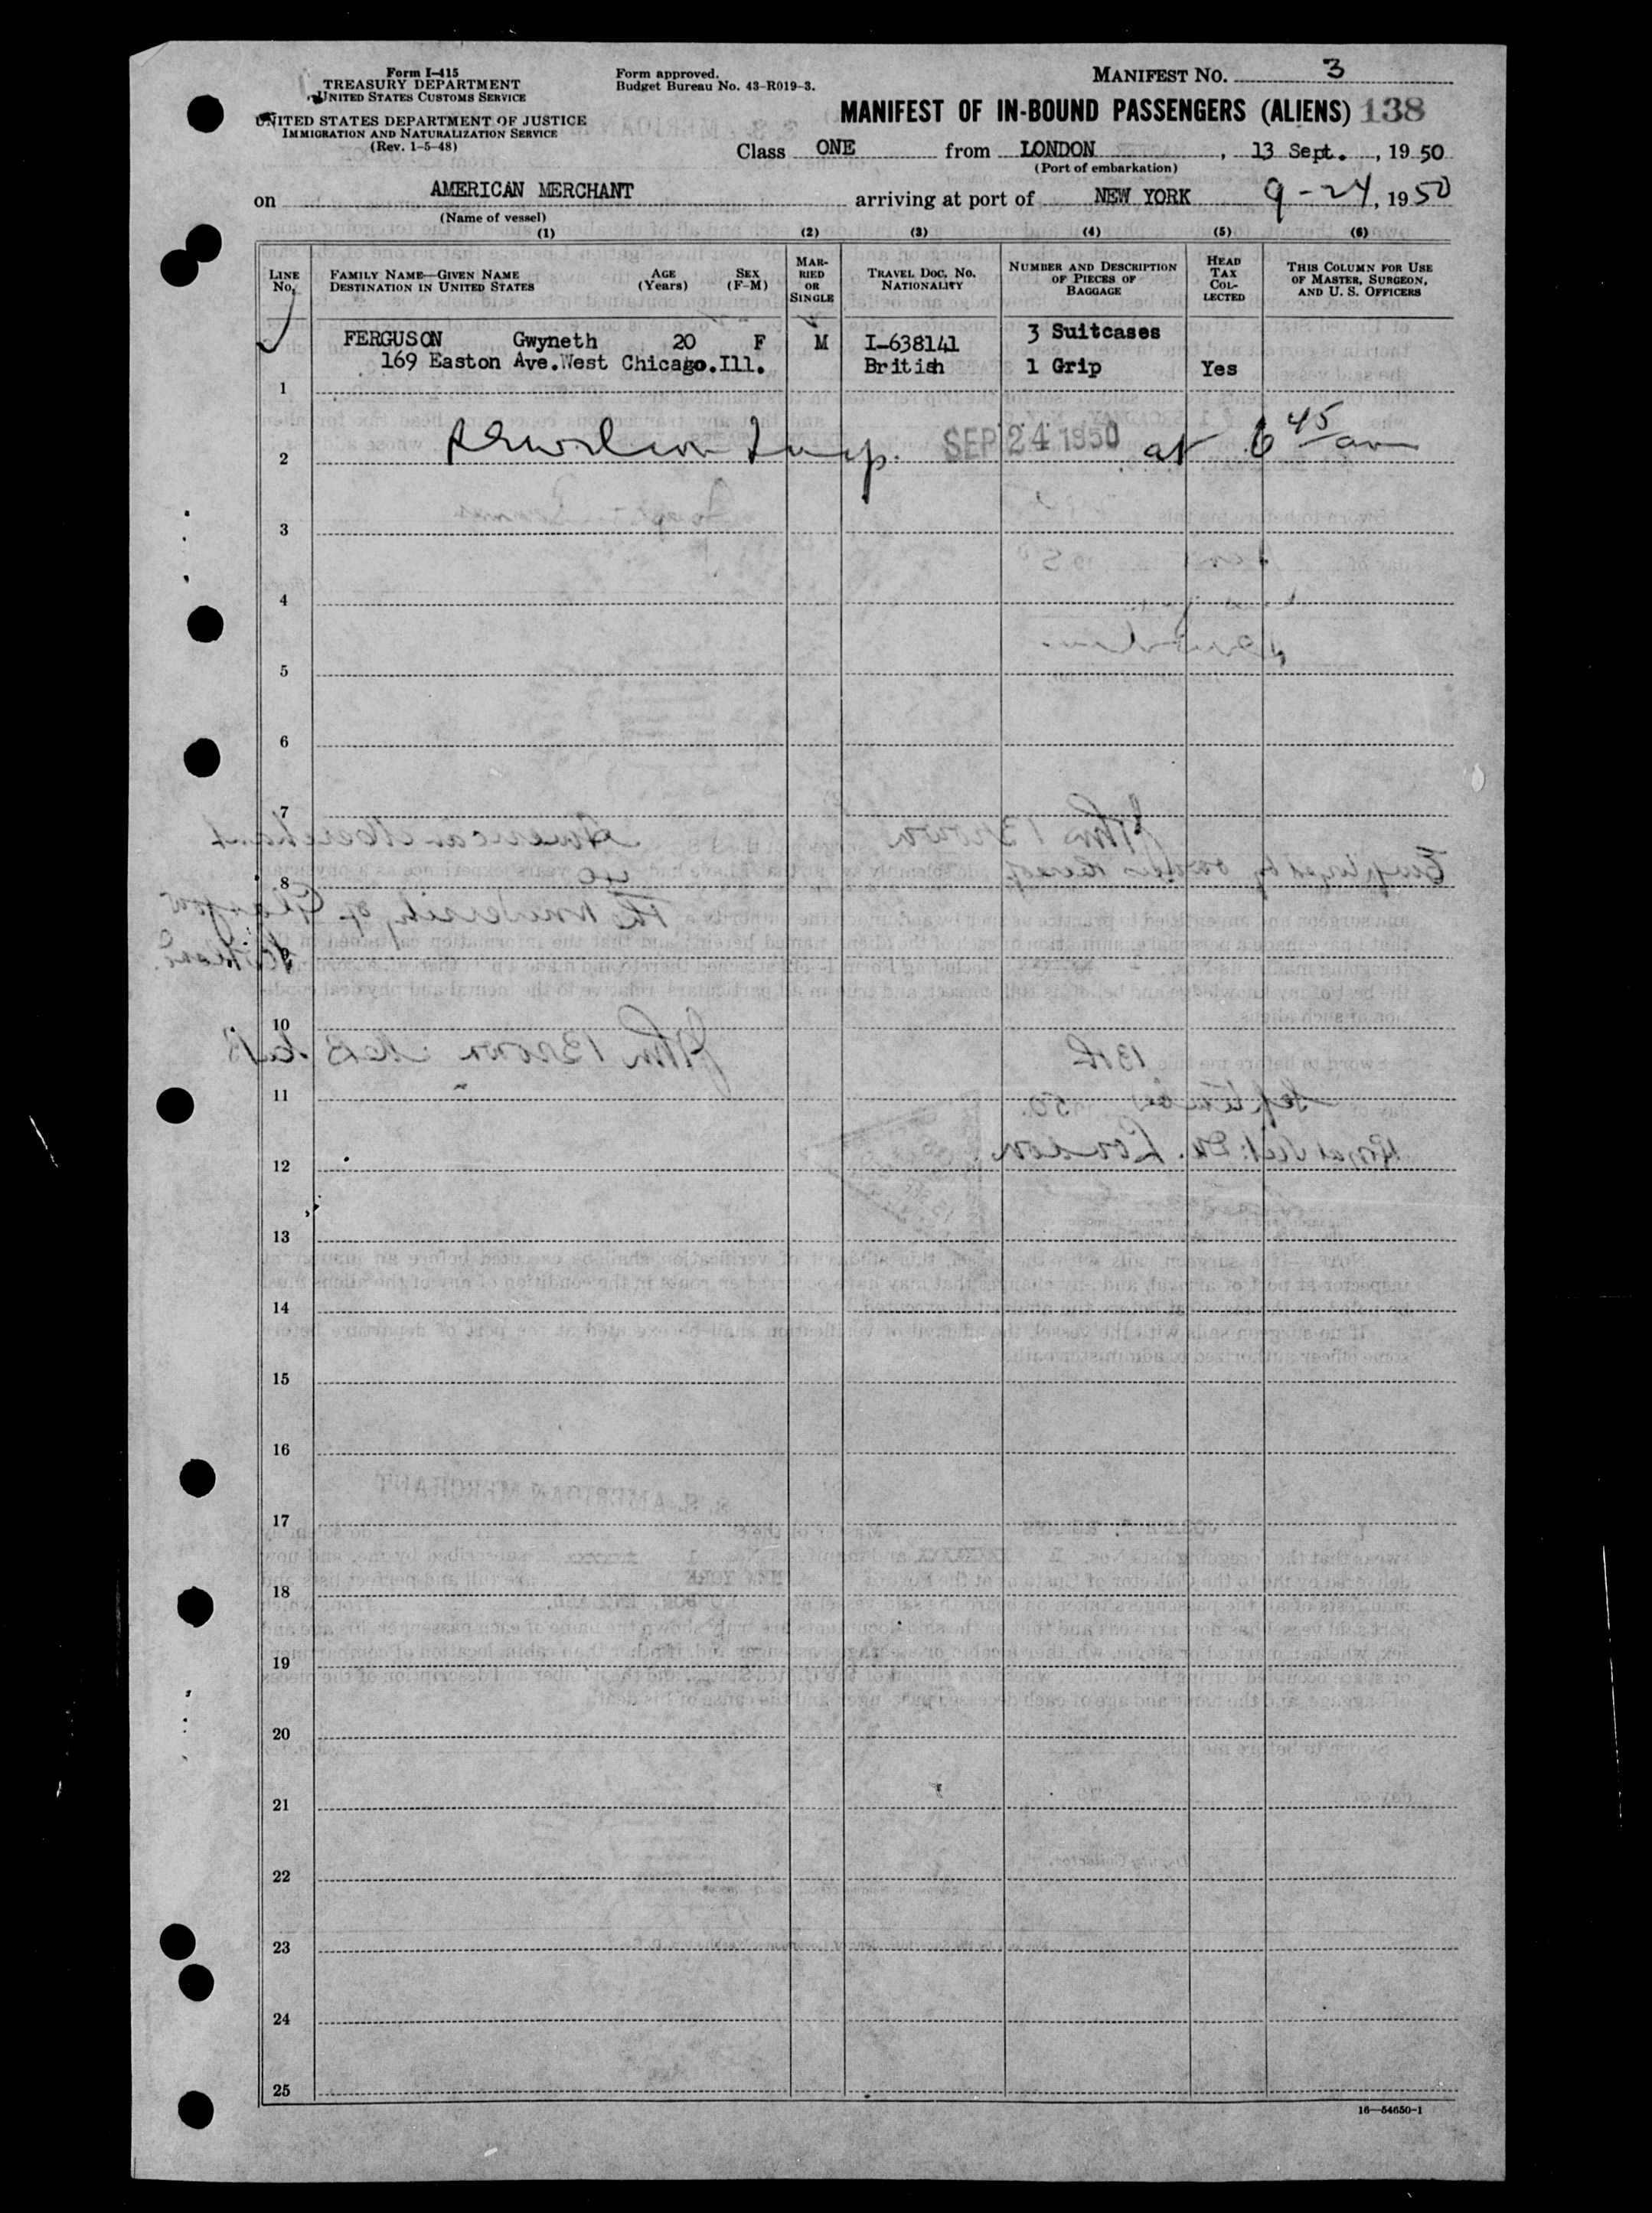 Form I-415
TREASURY DEPARTMENT
UNITED STATES CUSTOMS SERVICE
UNITED STATES DEPARTMENT OF JUSTICE
IMMIGRATION AND NATURALIZATION SERVICE
(Rev. 1-5-48)
Form approved.
Budget Bureau No. 43-R019-3.
MANIFEST NO. 3
MANIFEST OF IN-BOUND PASSENGERS (ALIENS) 138
Class ONE from LONDON, 13 Sept., 1950
(Port of embarkation)
on AMERICAN MERCHANT arriving at port of NEW YORK 9-24, 1950
(Name of vessel)
(1) (2) (3) (4) (5) (6)
LINE No.
FAMILY NAME—GIVEN NAME AGE SEX
DESTINATION IN UNITED STATES (Years) (F-M)
MAR-
RIED
OR
SINGLE
TRAVEL DOC. NO.
NATIONALITY
NUMBER AND DESCRIPTION
OF PIECES OF
BAGGAGE
HEAD
TAX
COL-
LECTED
THIS COLUMN FOR USE
OF MASTER, SURGEON,
AND U. S. OFFICERS
FERGUSON Gwyneth 20 F M I-638141 3 Suitcases
169 Easton Ave.West Chicago.Ill. British 1 Grip Yes
1
2 Insp. SEP 24 1950 at 6 45 am
3
4
5
6
7
8
9
10
11
12
13
14
15
16
17
18
19
20
21
22
23
24
25
16—54650-1